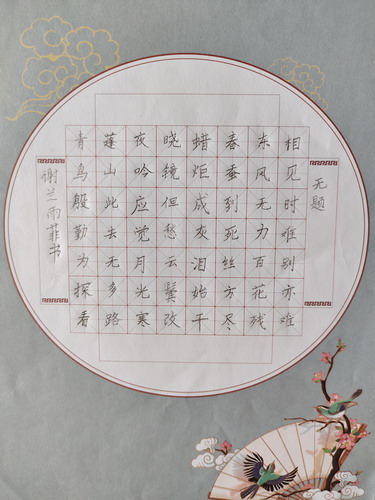 无题
相见时难别亦难
东风无力百花残
春蚕到死丝方尽
蜡炬成灰泪始干
晓镜但愁云鬓改
夜吟应觉月光寒
蓬山此去无多路
青鸟殷勤为探看
谢兰雨菲书